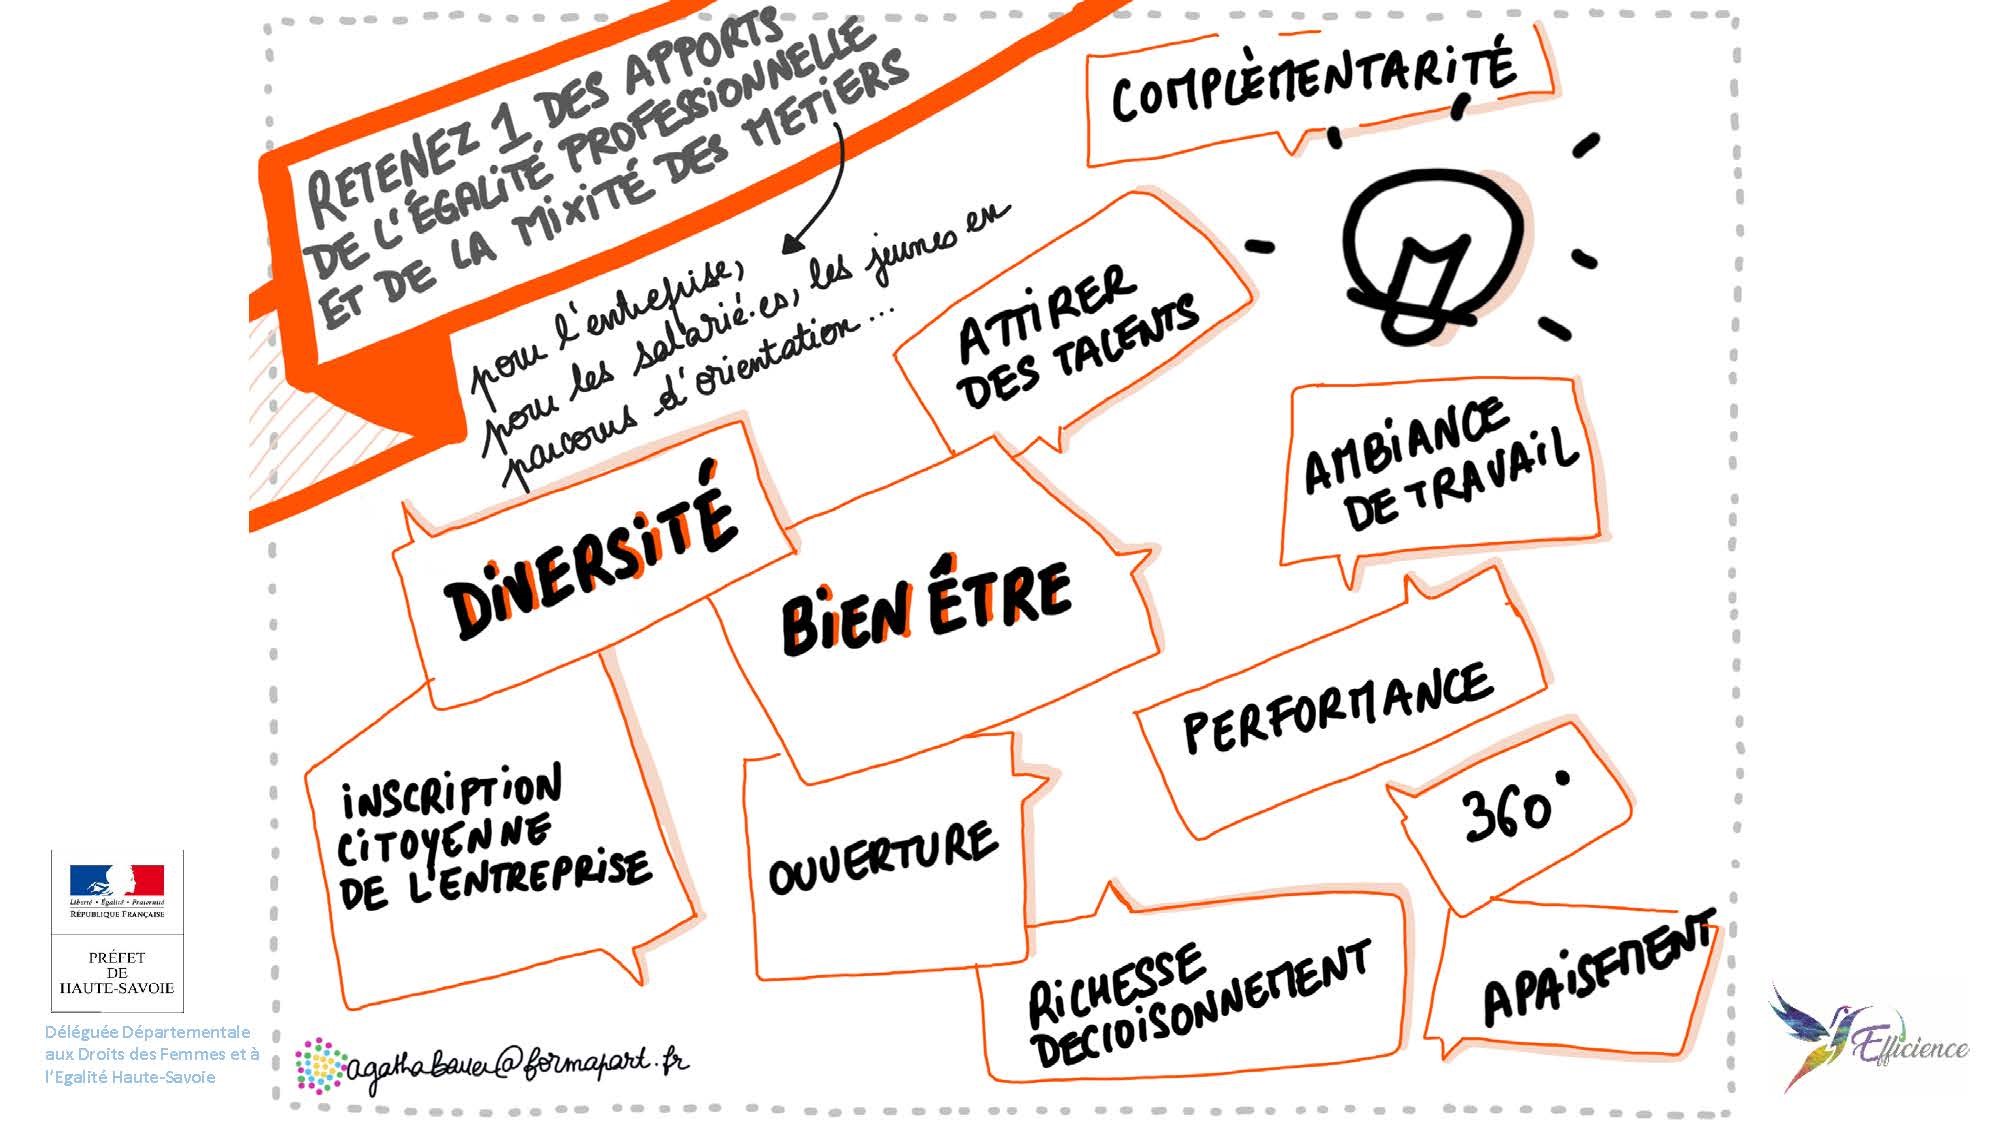 RETENEZ 1 DES APPORTS
DE L'ÉGALITÉ PROFESSIONNELLE
ET DE LA MIXITÉ DES MÉTIERS
pour l'entreprise,
pour les salarié.es, les jeunes en
parcours d'orientation...
COMPLÈMENTARITÉ
ATTIRER
DES TALENTS
AMBIANCE
DE TRAVAIL
DIVERSITÉ
BIEN ÊTRE
PERFORMANCE
360°
INSCRIPTION
CITOYENNE
DE L'ENTREPRISE
OUVERTURE
RICHESSE
DECIDISONNEMENT
APAISEMENT
Liberté • Égalité • Fraternité
RÉPUBLIQUE FRANÇAISE
PRÉFET
DE
HAUTE-SAVOIE
Déléguée Départementale
aux Droits des Femmes et à
l'Egalité Haute-Savoie
agathabauer@formapart.fr
Efficience